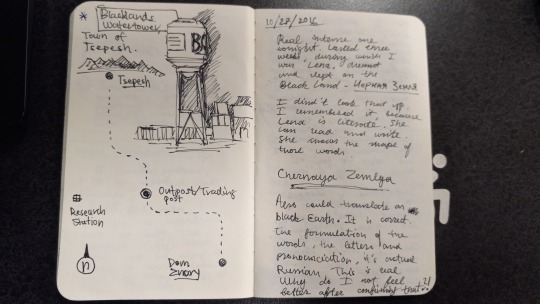 Blacklands
Watertower,
Town of
Tsepesh.
BC
Tsepesh
Outpost/Trading
post
Research
Station
n
Dom
10/28/2016
Real intense one
tonight. Lasted three
weeks, during which I
was Lena, dreamt
and slept on the
Black Land - Чёрная Земля
I didn't look that up.
I remembered it, because
Lena is literate. She
can read and write
She knows the shape of
those words.
Chernaya Zemlya
Also could translate as
black Earth. It is correct.
The formulation of the
words, the letters and
pronunciation, it's actual
Russian. This is real.
Why do I not feel
better after confirming that